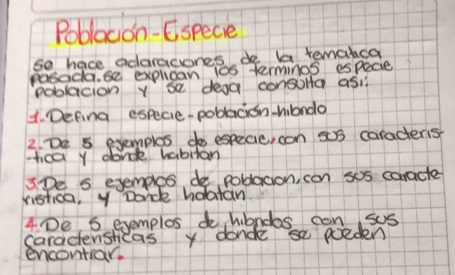 Población-Especie
se hace aclaraciones de la tematica
pasada, se explican los terminos especie
poblacion y se deja consulta asi:
1. Defina especie-población-hibrido
2. De 5 ejemplos de especie, con sus caracteris-
-tica y donde habitan
3. De 5 ejemplos de poblacion, con sus caracte
ristica, y Donde habitan
4. De 5 ejemplos de hibridos con sus
caracteristicas y donde se pueden
encontrar.